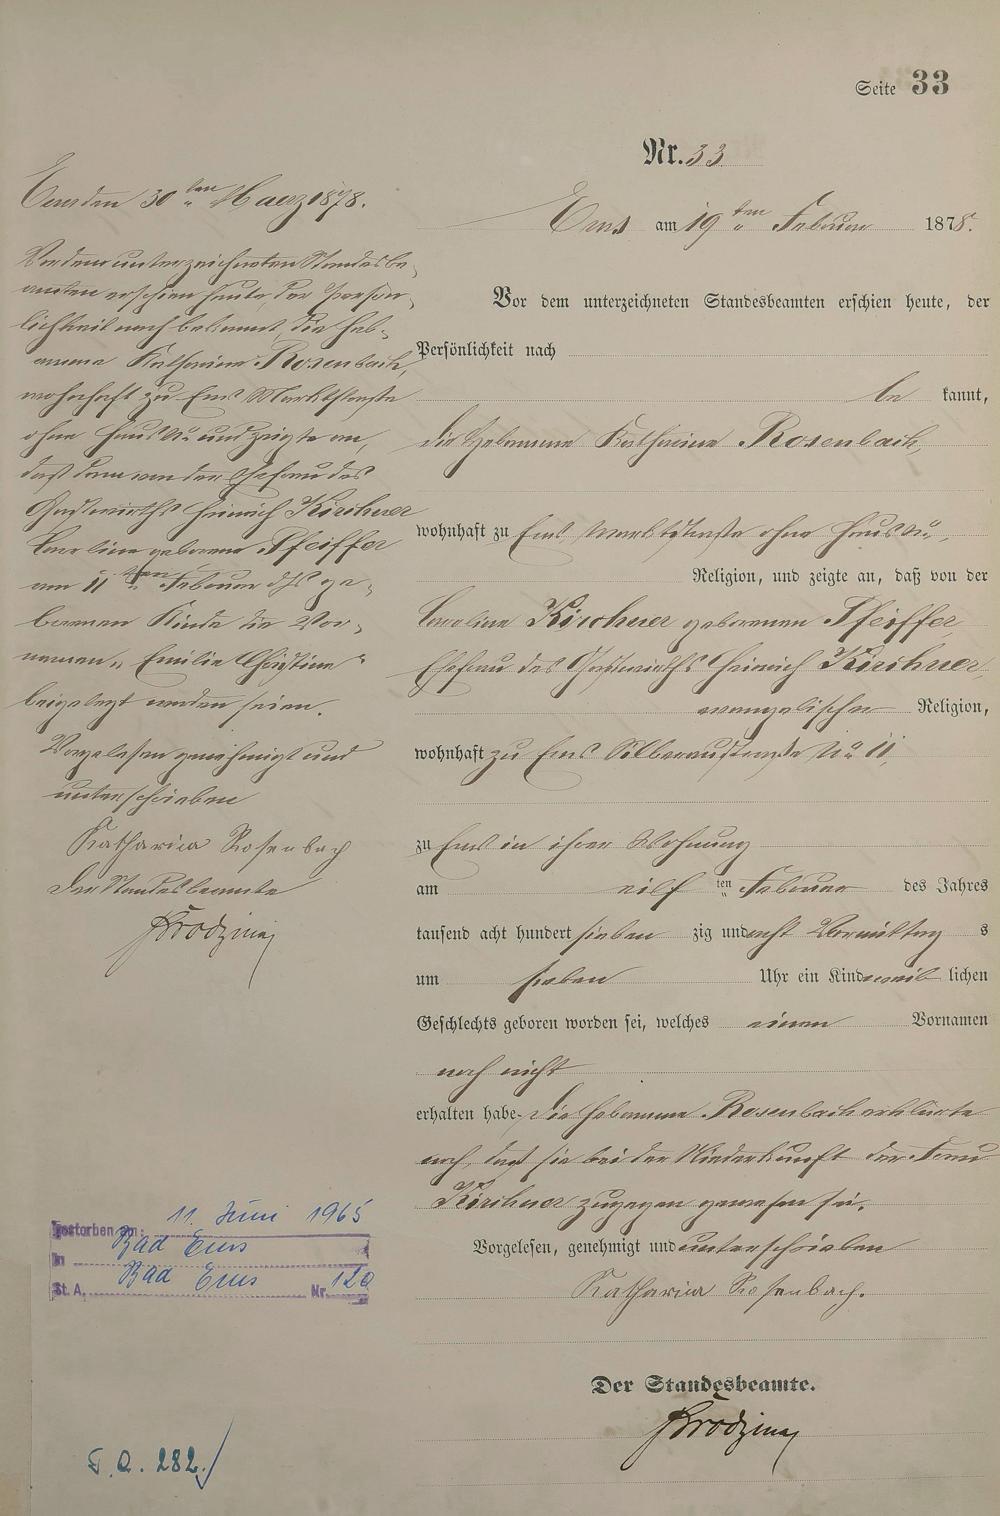 Seite 33
Nr. 33
Ems am 19ten Februar 1878.
Vor dem unterzeichneten Standesbeamten erschien heute, der
Persönlichkeit nach
be kannt,
die Hebamme Katharina Rosenbach,
wohnhaft zu Ems, Marktstraße ohne Haus Nr.,
Religion, und zeigte an, daß von der
Caroline Kirchner geborenen Pfeiffer
Ehefrau des Gastwirths Heinrich Kirchner,
evangelischer Religion,
wohnhaft zu Ems Silberaustraße No 11,
zu Ems in ihrer Wohnung
am eilf ten Februar des Jahres
tausend acht hundert sieben zig und acht Vormittag s
um sieben Uhr ein Kind weib lichen
Geschlechts geboren worden sei, welches einen Vornamen
noch nicht
erhalten habe. Die Hebamme Rosenbach erklärte
noch, daß sie bei der Niederkunft der Frau
Kirchner zugegen gewesen sei.
Vorgelesen, genehmigt und unterschrieben
Katharina Rosenbach.
Der Standesbeamte.
Ems den 30ten Maerz 1878.
Vor dem unterzeichneten Standesbe-
amten erschien heute, der Persön-
lichkeit nach bekannt, die Heb-
amme Katharina Rosenbach,
wohnhaft zu Ems Marktstraße
ohne Haus Nr. und zeigte an,
daß dem von der Ehefrau des
Gastwirths Heinrich Kirchner
Caroline geborene Pfeiffer
am 11ten Februar dJs ge-
borenen Kinde die Vor-
namen "Emilie Christine"
beigelegt worden seien.
Vorgelesen genehmigt und
unterschrieben
Katharina Rosenbach
Der Standesbeamte
Gestorben am: 11. Juni 1965
In Bad Ems
St. A. Bad Ems Nr. 120
282.